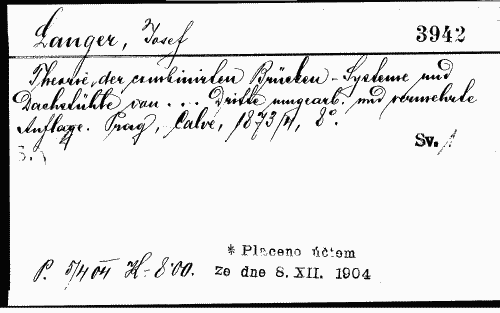 Langer, Josef
3942
Theorie der combinirten Brücken-Systeme und
Dachstühle von ... Dritte umgearb. und vermehrte
Auflage. Prag, Calve, 1873/4, 8°.
Sv. 1
P. 5/4 04 K- 8.00.
* Placeno účtem
ze dne 8. XII. 1904